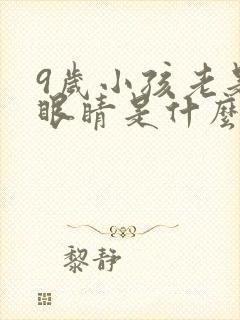 9歲小孩老是
眼睛是什麼
黎静